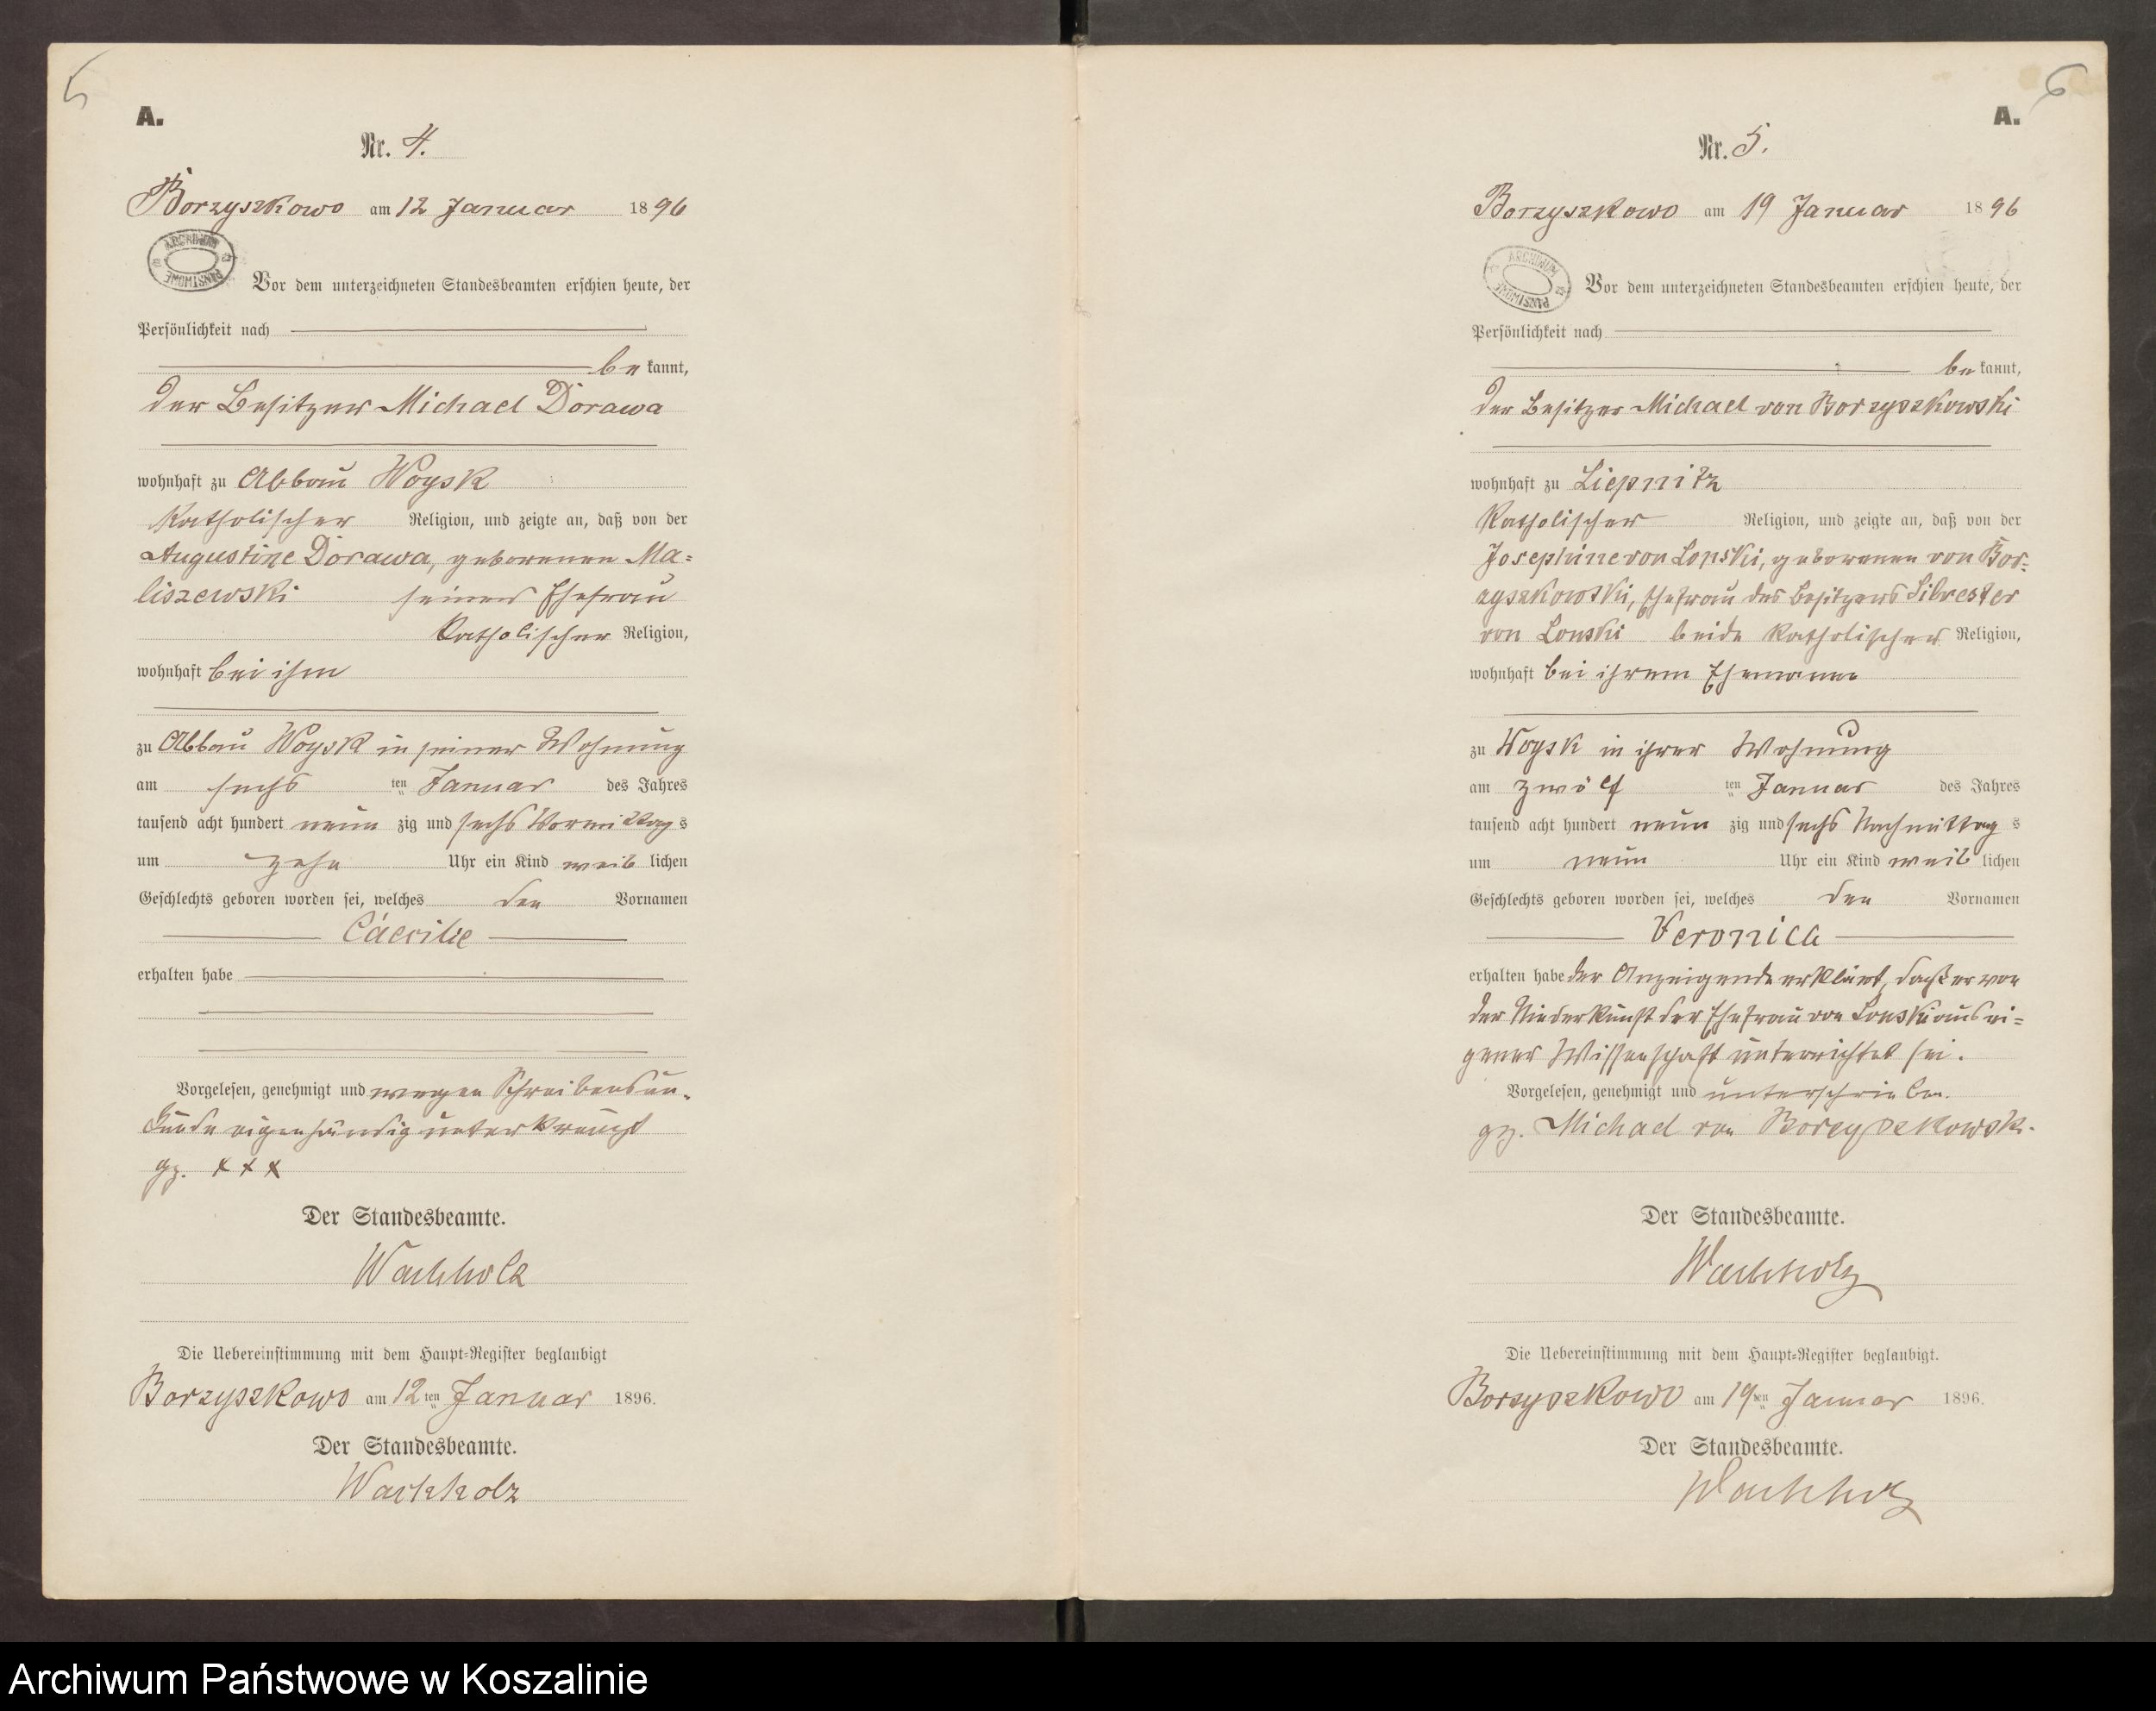 5
A.
Nr. 4.
Borzyszkowo am 12 Januar 1896
ARCHIWUM PAŃSTWOWE
Vor dem unterzeichneten Standesbeamten erschien heute, der
Persönlichkeit nach
be kannt,
der Besitzer Michael Dorawa
wohnhaft zu Abbau Woysk
katholischer Religion, und zeigte an, daß von der
Augustine Dorawa, geborenen Ma=
liszewski seiner Ehefrau
katholischer Religion,
wohnhaft bei ihm
zu Abbau Woysk in seiner Wohnung
am sechs ten Januar des Jahres
tausend acht hundert neun zig und sechs Vormittag s
um zehn Uhr ein Kind weib lichen
Geschlechts geboren worden sei, welches den Vornamen
Cäecilie
erhalten habe
Vorgelesen, genehmigt und wegen Schreibensun-
kunde eigenhändig unterkreuzt
gz. x x x
Der Standesbeamte.
Wachholz
Die Uebereinstimmung mit dem Haupt=Register beglaubigt
Borzyszkowo am 12 ten Januar 1896.
Der Standesbeamte.
Wachholz
6
A.
Nr. 5.
Borzyszkowo am 19 Januar 1896
ARCHIWUM PAŃSTWOWE
Vor dem unterzeichneten Standesbeamten erschien heute, der
Persönlichkeit nach
be kannt,
der Besitzer Michael von Borzyszkowski
wohnhaft zu Liepnitz
katholischer Religion, und zeigte an, daß von der
Josephine von Lonski, geborenen von Bor=
zyszkowski, Ehefrau des Besitzers Silvester
von Lonski beide katholischer Religion,
wohnhaft bei ihrem Ehemanne
zu Woysk in ihrer Wohnung
am zwölf ten Januar des Jahres
tausend acht hundert neun zig und sechs Nachmittag s
um neun Uhr ein Kind weib lichen
Geschlechts geboren worden sei, welches den Vornamen
Veronica
erhalten habe der Anzeigende erklärt, daß er von
der Niederkunft der Ehefrau von Lonski aus ei=
gener Wissenschaft unterrichtet sei.
Vorgelesen, genehmigt und unterschrieben.
gz. Michael von Borzyszkowski.
Der Standesbeamte.
Wachholz
Die Uebereinstimmung mit dem Haupt=Register beglaubigt.
Borzyszkowo am 19 ten Januar 1896.
Der Standesbeamte.
Wachholz
Archiwum Państwowe w Koszalinie